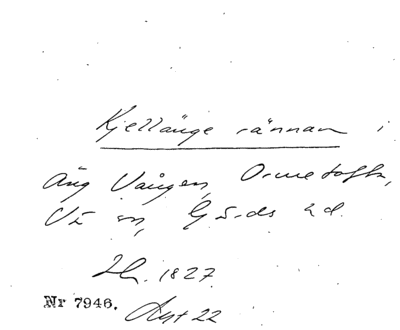 Kjellänge rännan i
äng Vången, Ormetofta,
V:a sn, Gärds hd.
Lh. 1827.
Nr 7946. Avst 22